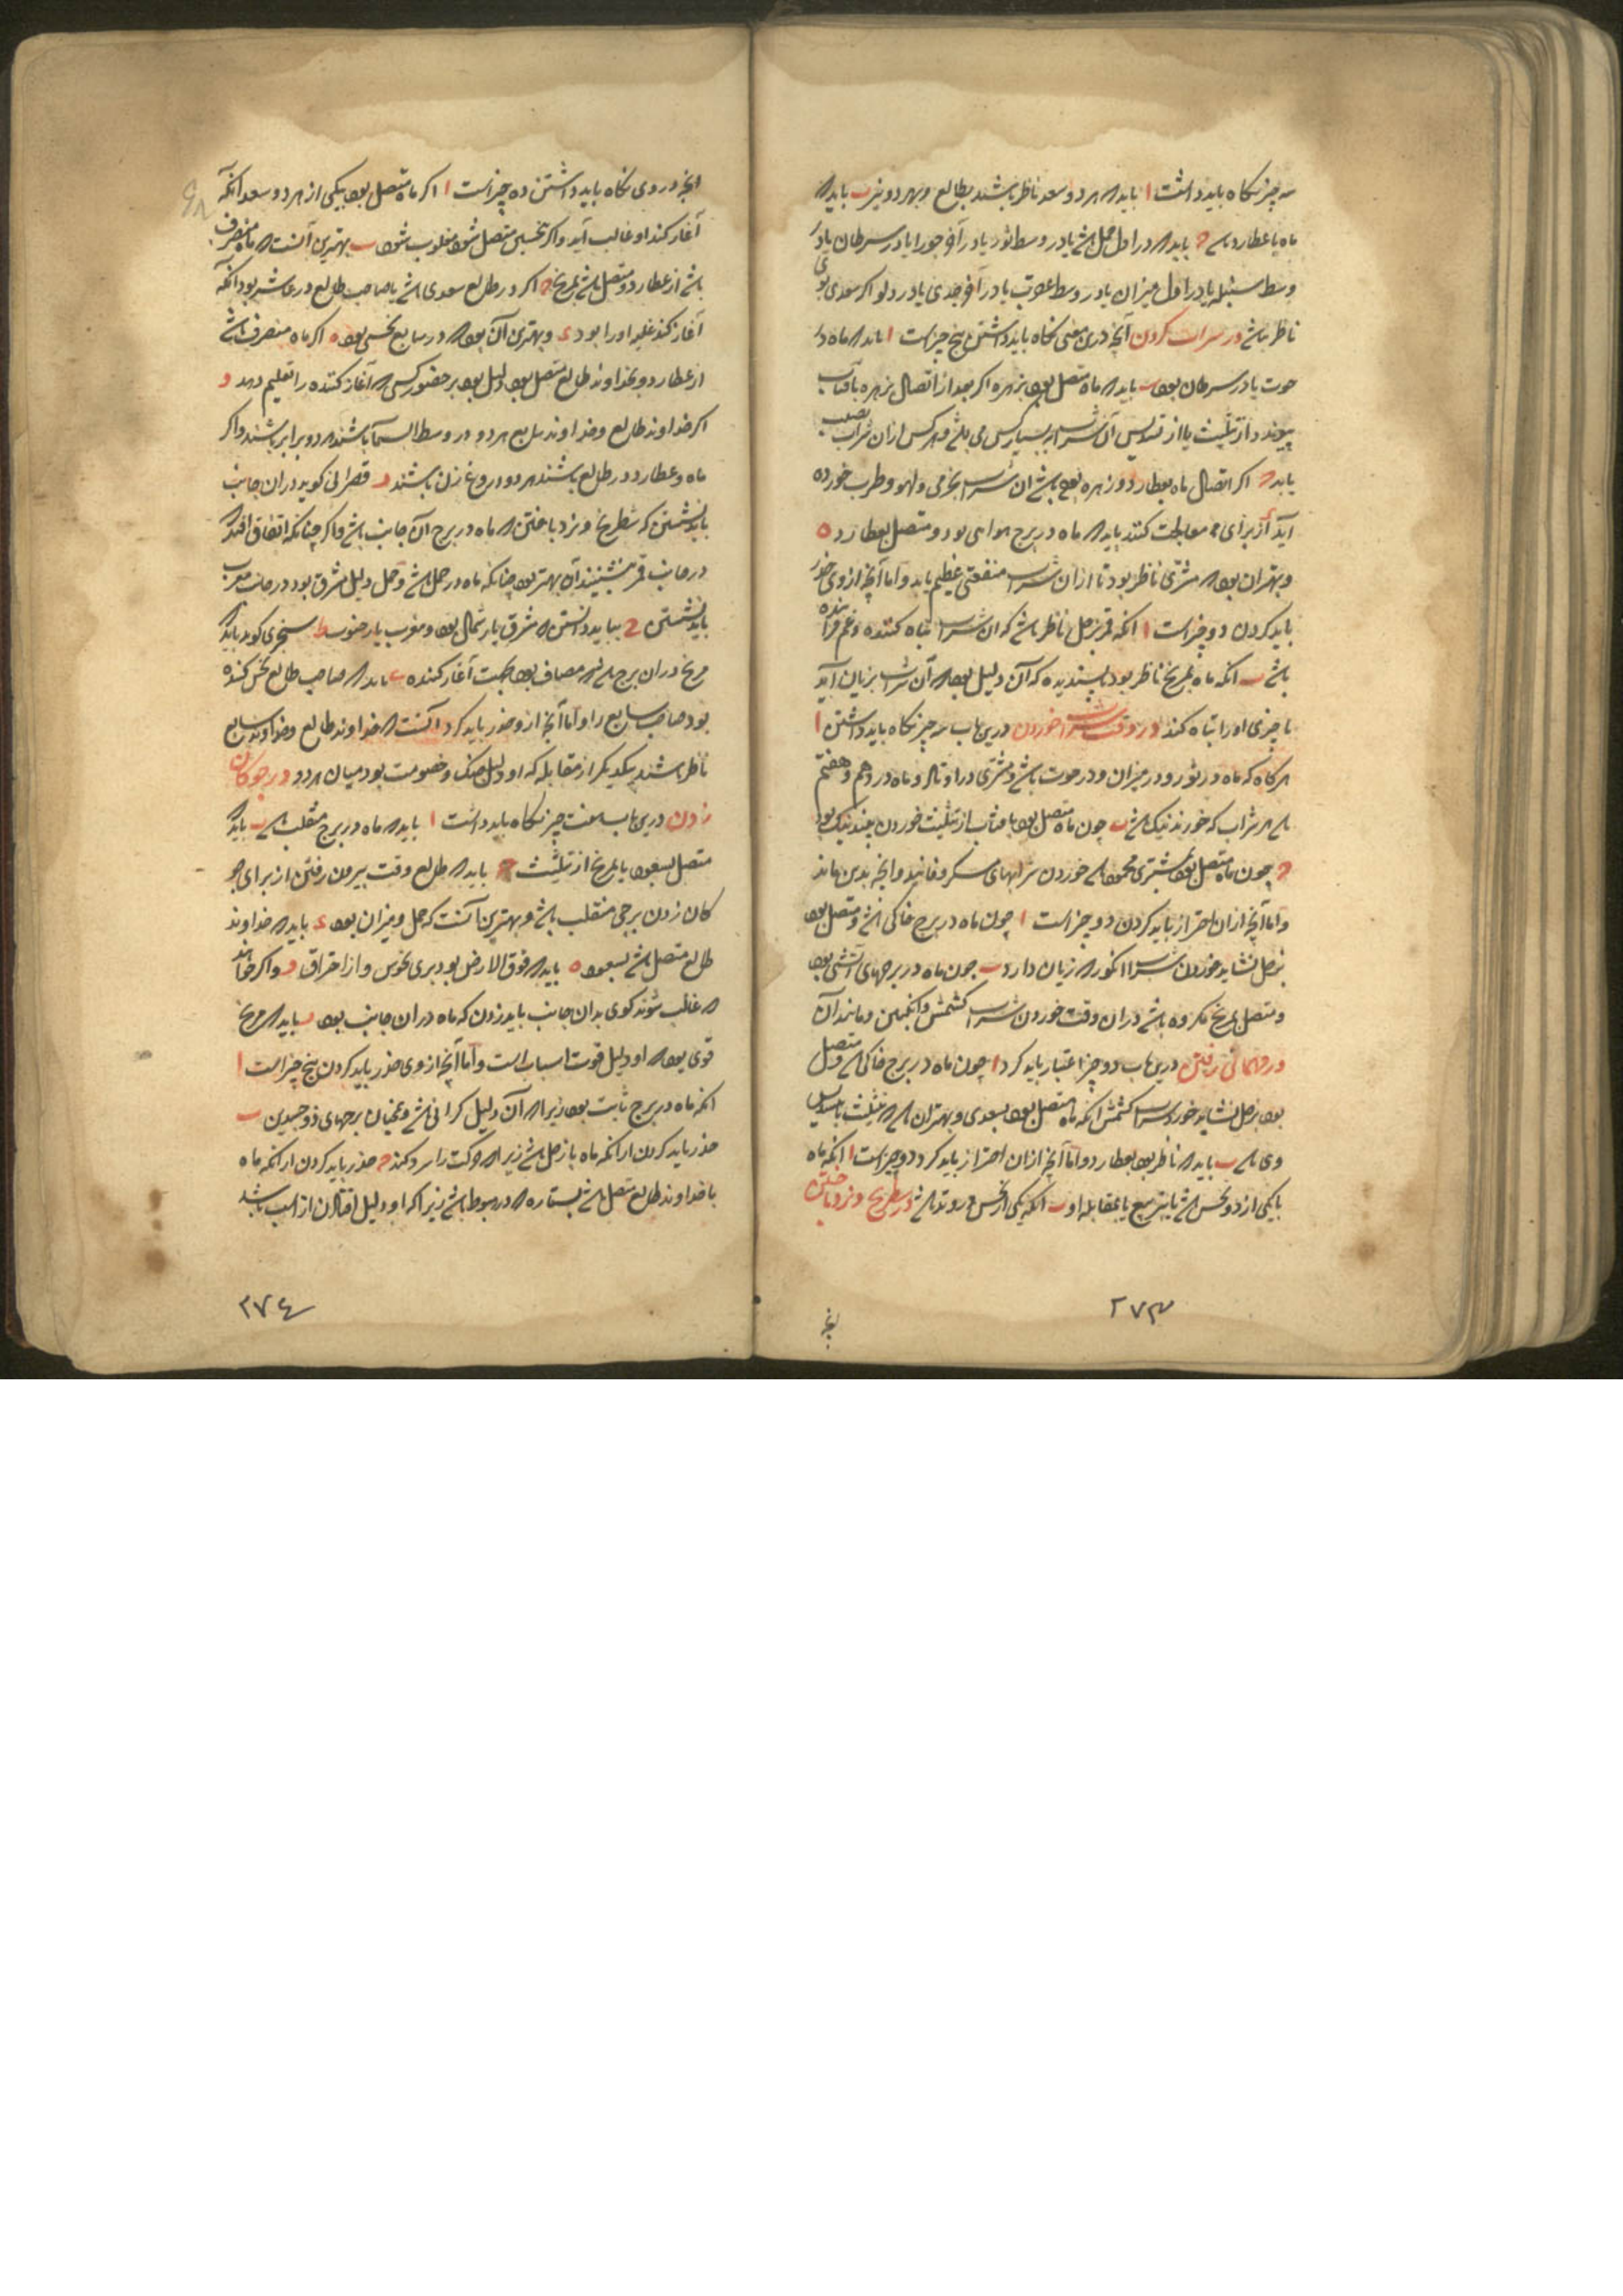 سه چیز نگاه باید داشت ا باید که هر دو سعد ناظر باشند بطالع و بهر دو نیر ب باید که
ماه با عطارد باشد ج باید که در اول حمل باشد یا در وسط ثور یا در آخر جوزا یا در سرطان یا در
وسط سنبله یا در اول میزان یا در وسط عقرب یا در آخر جدی یا در دلو اگر سعدی بوی
ناظر باشد در شراب کردن آنچه درین معنی نگاه باید داشتن پنج چیز است ا باید که ماه در
حوت یا در سرطان بود ب باید که ماه متصل بود بزهره اگر بعد از اتصال زهره بآفتاب
پیوندد از تثلیث یا از تسدیس آن شراب بسیار کس می باشد و هر کس از آن شراب نصیب
یابد ج اگر اتصال ماه بعطارد و زهره بود باشد آن شراب بخرمی و لهو و طرب خورده
آید د از برای معالجت کنند باید که ماه در برج هوایی بود و متصل بعطارد ه
و بهتر آن بود که مشتری ناظر بود تا از آن شراب منفعتی عظیم یابد و اما آنچه از وی حذر
باید کردن دو چیز است ا آنکه قمر بزحل ناظر باشد که آن شراب تباه کننده و غم فزاینده
باشد ب آنکه ماه بمریخ ناظر بود ناپسندیده که آن دلیل بود که آن شراب بزیان آید
یا چیزی او را تباه کند در وقت شراب خوردن درین باب سه چیز نگاه باید داشتن ا
هر گاه که ماه در ثور و در میزان و در حوت باشد و مشتری در اوتاد و ماه در دهم و هفتم
باشد هر شراب که خورند نیک باشد ب چون ماه متصل بود بآفتاب از تثلیث خوردن نیک بود
ج چون ماه متصل بود بمشتری محمود باشد خوردن شرابهای سکر و فانید و آنچه بدین ماند
و اما آنچه از آن احتراز باید کردن دو چیز است ا چون ماه در برج خاکی باشد و متصل بود
بزحل نشاید خوردن شراب انگور که زیان دارد ب چون ماه در برجهای آتشی بود
و متصل بمریخ مکروه باشد در آن وقت خوردن شراب کشمش و انگبین و مانند آن
در مهمانی رفتن درین باب دو چیز اعتبار باید کرد ا چون ماه در برج خاکی باشد و متصل
بود بزحل نشاید خورد شراب کشمش آنکه ماه متصل بود بسعدی و بهتر آن باشد که تثلیث یا تسدیس
وی باشد ب باید که ناظر بود بعطارد و اما آنچه از آن احتراز باید کرد دو چیز است ا آنکه ماه
با یکی از دو نحس باشد یا بتربیع یا بمقابله او ب آنکه یکی از نحس در وتد باشد در شطرنج و نرد باختن
۲۷۳
آنچه در وی نگاه باید داشتن ده چیز است ا اگر ماه متصل بود بیکی از هر دو سعد آنکه
آغاز کند او غالب آید و اگر بنحسی متصل شود مغلوب شود ب بهترین آنست که ماه منصرف
باشد از عطارد و متصل باشد بمریخ ج اگر در طالع سعدی باشد یا صاحب طالع در عاشر بود آنکه
آغاز کند غلبه او را بود د و بهترین آن بود که در سابع نحسی بود ه اگر ماه منصرف باشد
از عطارد و بخداوند طالع متصل بود دلیل بود بر حضور کسی که آغاز کننده را تعلیم دهد و
اگر خداوند طالع و خداوند سابع هر دو در وسط السما باشند هر دو برابر باشند و اگر
ماه و عطارد در طالع باشند هر دو دروغ زن باشند ز قصرانی گوید در آن جانب
باید نشستن که شطرنج و نرد باختن که ماه در برج آن جانب باشد و اگر چنانکه اتفاق افتد که
در جانب قمر نشینند آن بهتر بود چنانکه ماه در حمل باشد و حمل دلیل مشرق بود در جانب مغرب
باید نشستن ح بباید دانستن که مشرق یار شمال بود و مغرب یار جنوب ط سجزی گوید باید که
مریخ در آن برج باشد که مضاف بود بجهت آغاز کننده ی باید که صاحب طالع نحس کننده
بود صاحب سابع را و اما آنچه از و حذر باید کرد آنست که خداوند طالع و خداوند سابع
ناظر باشند بیکدیگر از مقابله که او دلیل جنگ و خصومت بود میان هر دو در چوگان
زدن درین باب هفت چیز نگاه باید داشت ا باید که ماه در برج منقلب باشد ب باید که
متصل بسعود یا بمریخ از تثلیث ج باید که طالع وقت بیرون رفتن از برای چو
گان زدن برجی منقلب باشد و بهترین آنست که حمل و میزان بود د باید که خداوند
طالع متصل باشد بسعود ه باید که فوق الارض بود بری از نحوس و از احتراق و و اگر خواهند
که غالب شوند گوی بدان جانب باید زدن که ماه در آن جانب بود ز باید که مریخ
قوی بود که او دلیل قوت اسپان است و اما آنچه از وی حذر باید کردن پنج چیز است ا
آنکه ماه در برج ثابت بود زیرا که آن دلیل گرانی باشد و همچنان برجهای ذو جسدین ب
حذر باید کردن از آنکه ماه با زحل باشد زیرا که حرکت را سرد کند ج حذر باید کردن از آنکه ماه
با خداوند طالع متصل باشد بستاره که در هبوط باشد زیرا که او دلیل افتادن از اسب باشد
۲۷٤